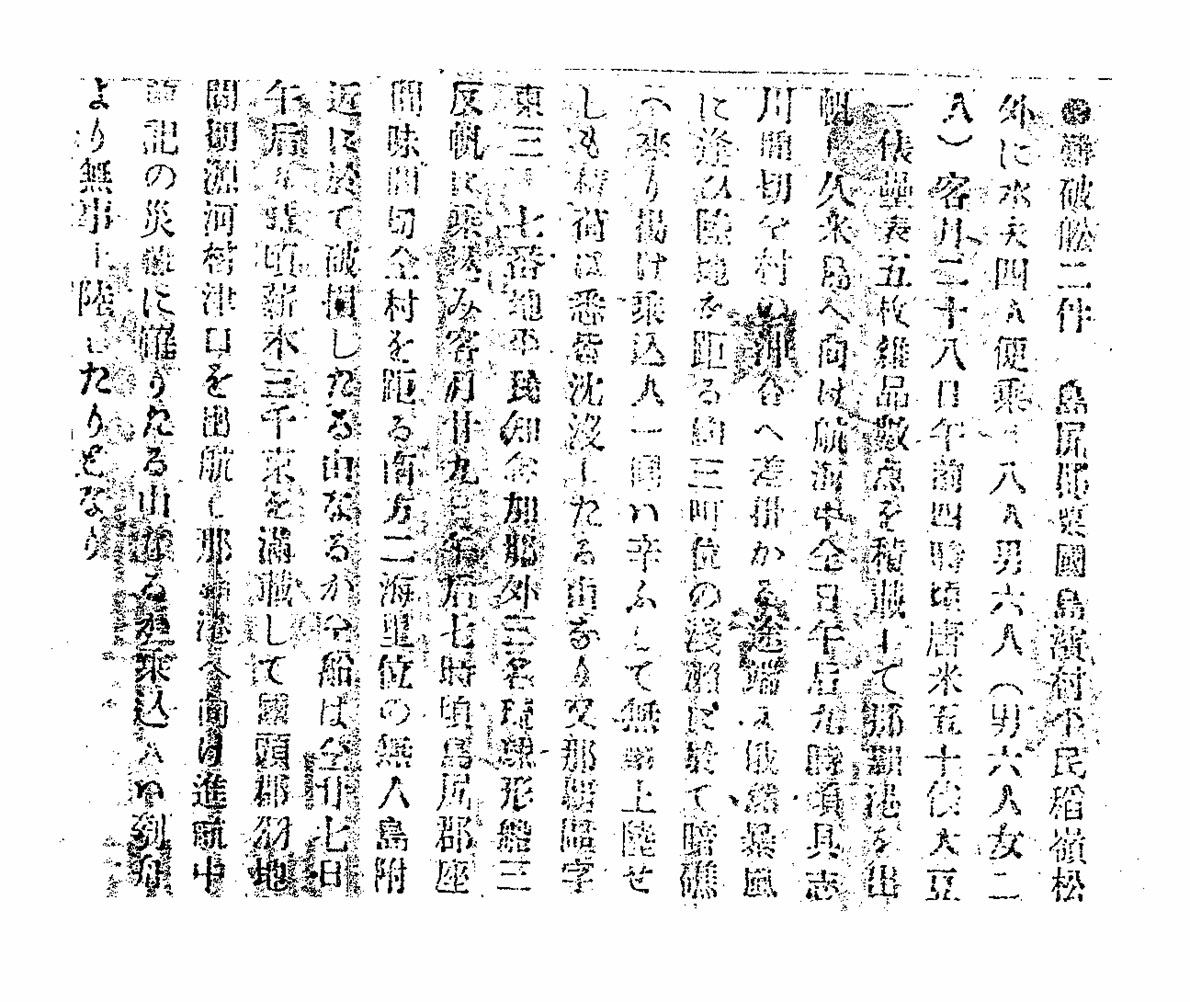 ●難破船二件 島尻郡粟國島濱村平民稻嶺松
外に水夫四人便乗 八人男六人(男六人女二
人)客月二十八日午前四時頃唐米五十俵大豆
一俵疊表五枚雑品数点を積載して那覇港を出
帆し久米島へ向け航海中仝日午后九時頃具志
川間切 村 沖合へ差掛かる途端 俄然暴風
に逢ひ陸地を距る 三町位の淺瀬に於て暗礁
へ乗り揚け乗込人一同ハ辛ふして無難上陸せ
しも積荷は悉皆沈没したる由なり又那覇 字
東三 七番地平民知念加那外三名琉球形船三
反帆に乗込み客月廿九日午后七時頃島尻郡座
間味間切仝村を距る南方二海里位の無人島附
近に於て破損したる由なるか仝船は仝廿七日
午后 頃薪木三千束を滿載して國頭郡羽地
間切源河村津口を出航し那覇港へ向け進航中
前記の災難に罹りたる由なる 乗込人 舟
より無事上陸したりとなり